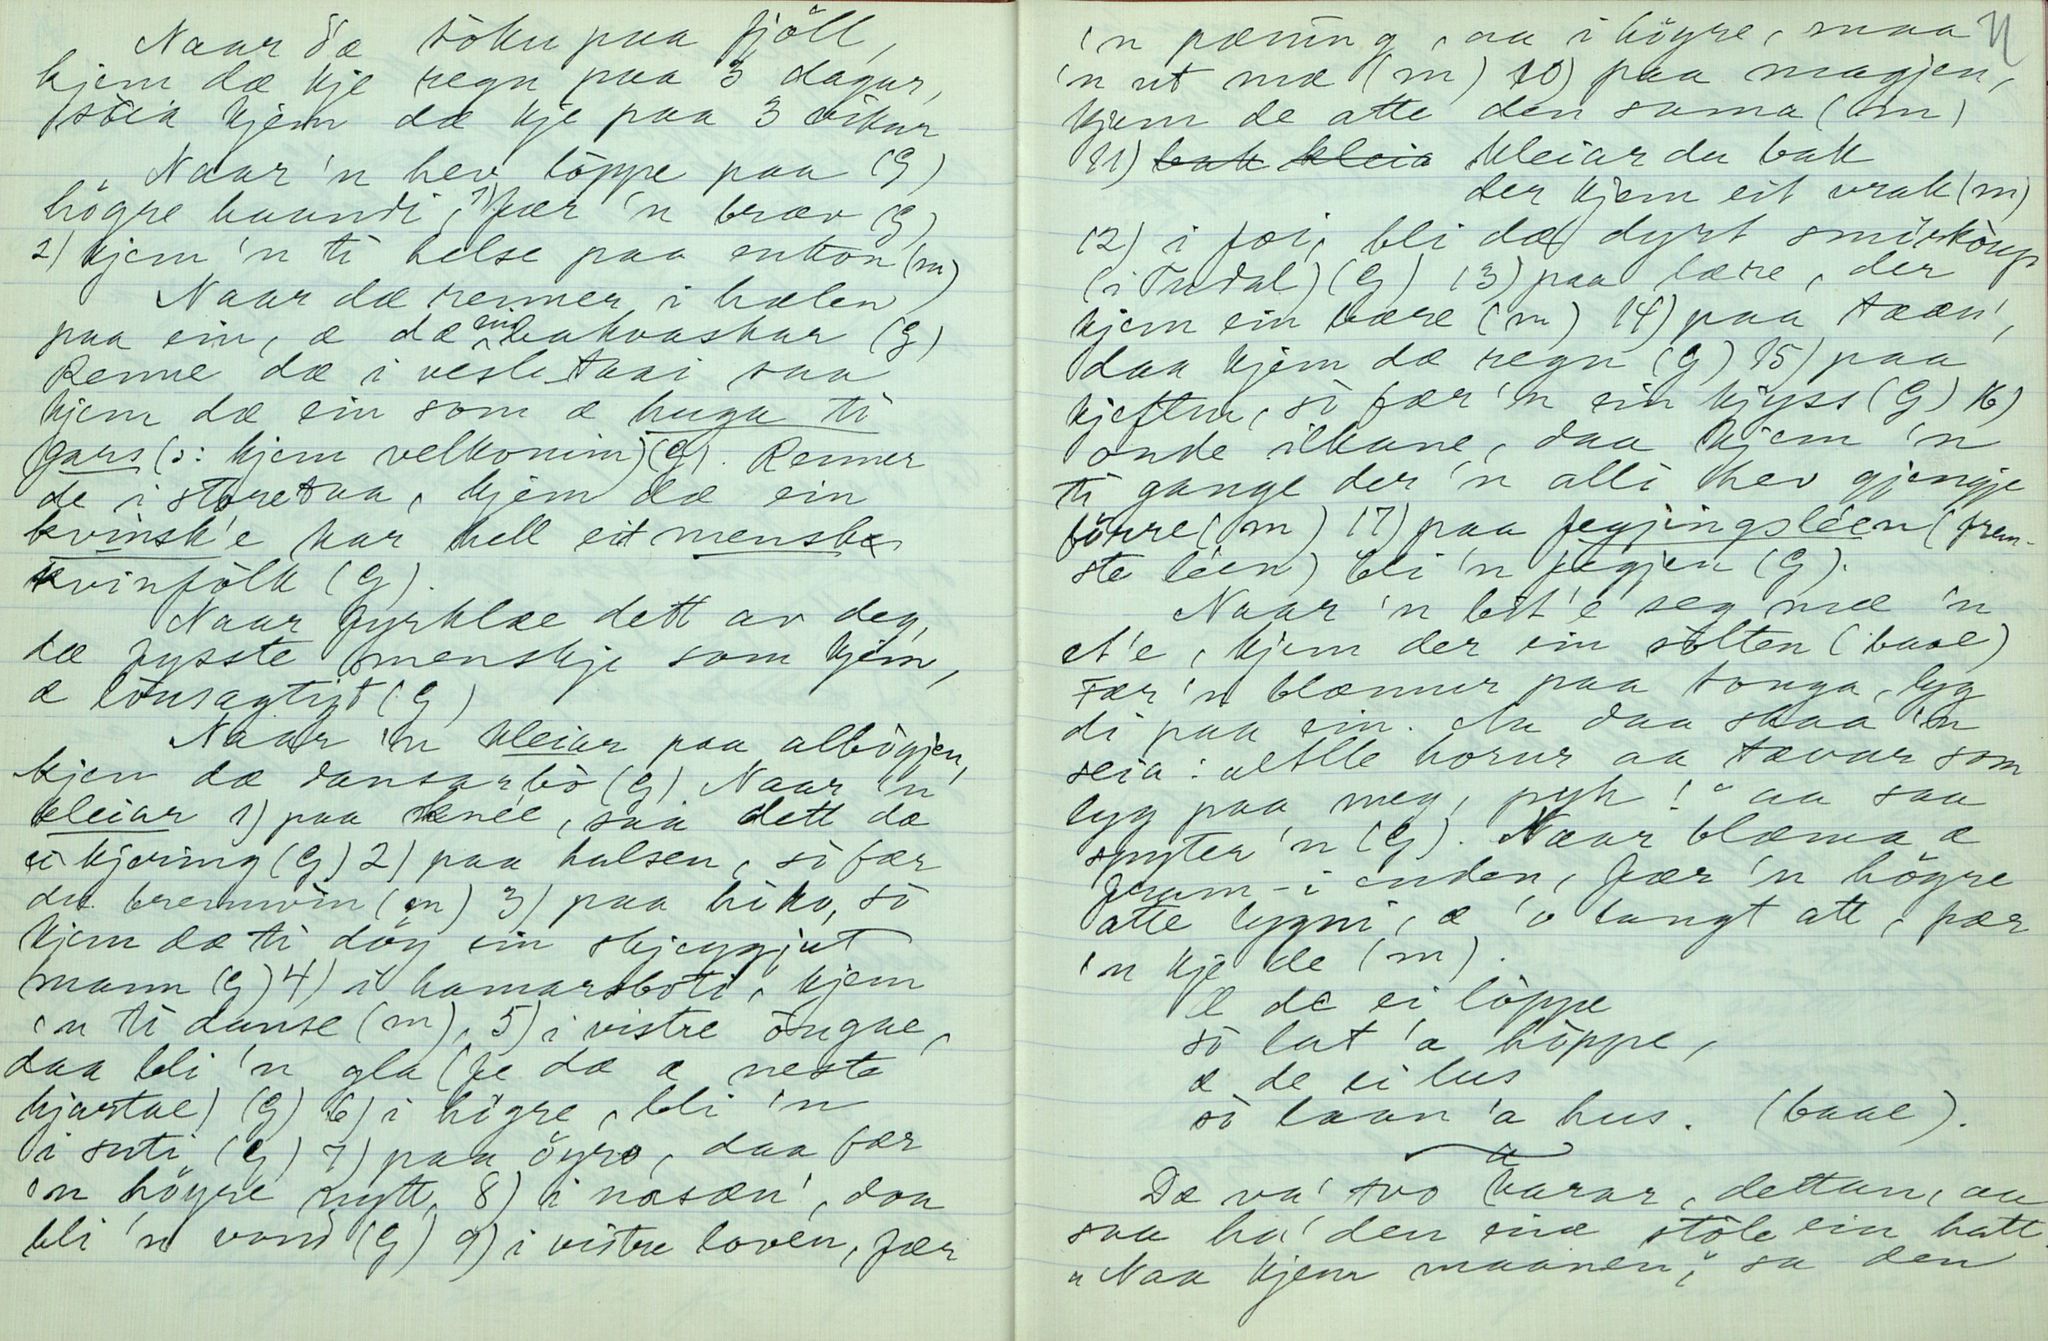 Naar dæ töku paa fjöll,
kjem dæ kje regn paa 3 dagar,
kjem dæ kje paa 3 vikur
Naar 'n hev löppe paa (G)
högre haandi, 1) fær 'n bræv (G)
2) kjem 'n ti helse paa enkon (m)
Naar dæ renner i hælen
paa ein, æ dæ ein bakvaskar (G)
Renne dæ i vesletaai saa
kjem dæ ein som æ huga ti
gars (ɔ: kjem velkomin) (G). Renner
de i storetaa, kjem dæ ein
kvinsk'e kar hell eit menske
kvinfolk (G).
Naar fyrklæ dett av deg,
dæ fysste menskje som kjem,
æ lönsagtigt (G)
Naar 'n kleiar paa albogjen,
kjem dæ dansarbö (G) Naar 'n
kleiar 1) paa knéé, saa dett dæ
ei kjering (G) 2) paa halsen, so fær
du brennvin (m) 3) paa hiko, so
kjem dæ ti döy ein skjeggjut
mann (G) 4) i hamarsboti, kjem
'n ti danse (m), 5) i vistre öugae,
daa bli 'n gla (fe dæ æ neste
hjartae) (G) 6) i högre, bli 'n
i suti (G) 7) paa öyro, daa fær
'n höyre nytt, 8) i nasæn', daa
bli 'n vond (G) 9) i vistre loven, fær
'n pæning, aa i högre, maa 11
'n ut mæ (m) 10) paa magjen,
kjem de atte den sama (m)
11) bak kleia kleiar du bak
der kjem eit vrak (m)
12) i föi, bli dæ dyrt smörköup
(i Tudal) (G) 13) paa lære, der
kjem ein bære (m) 14) paa tææn',
daa kjem dæ regn (G) 15) paa
kjeften, so fær 'n ein kjyss (G) 16)
onde ilkane, daa kjem 'n
ti gange der 'n alli hev gjengje
förre (m) 17) paa fegjingsléen (frem-
ste léen) bli 'n fegjen (G).
Naar 'n bit'e seg mæ 'n
et'e, kjem der ein solten (baae)
Fær 'n blæmur paa tonga, lyg
di paa ein. Aa daa skaa 'n
seia: „Alle horur aa tævar som
lyg paa meg, pyh!“ aa saa
spyter 'n (G). Naar blæma æ
fram-i enden, fær 'n högre
atte lygni, æ 'o langt att, fær
'n kje de (m).
Æ de ei löppe
so lat 'a höppe,
æ de ei lus
so laan 'a hus. (baae).
Dæ va' tvo karar, dettan, aa
saa ha' den eine stole ein hatt.
„Naa kjem maanen,“ sa den